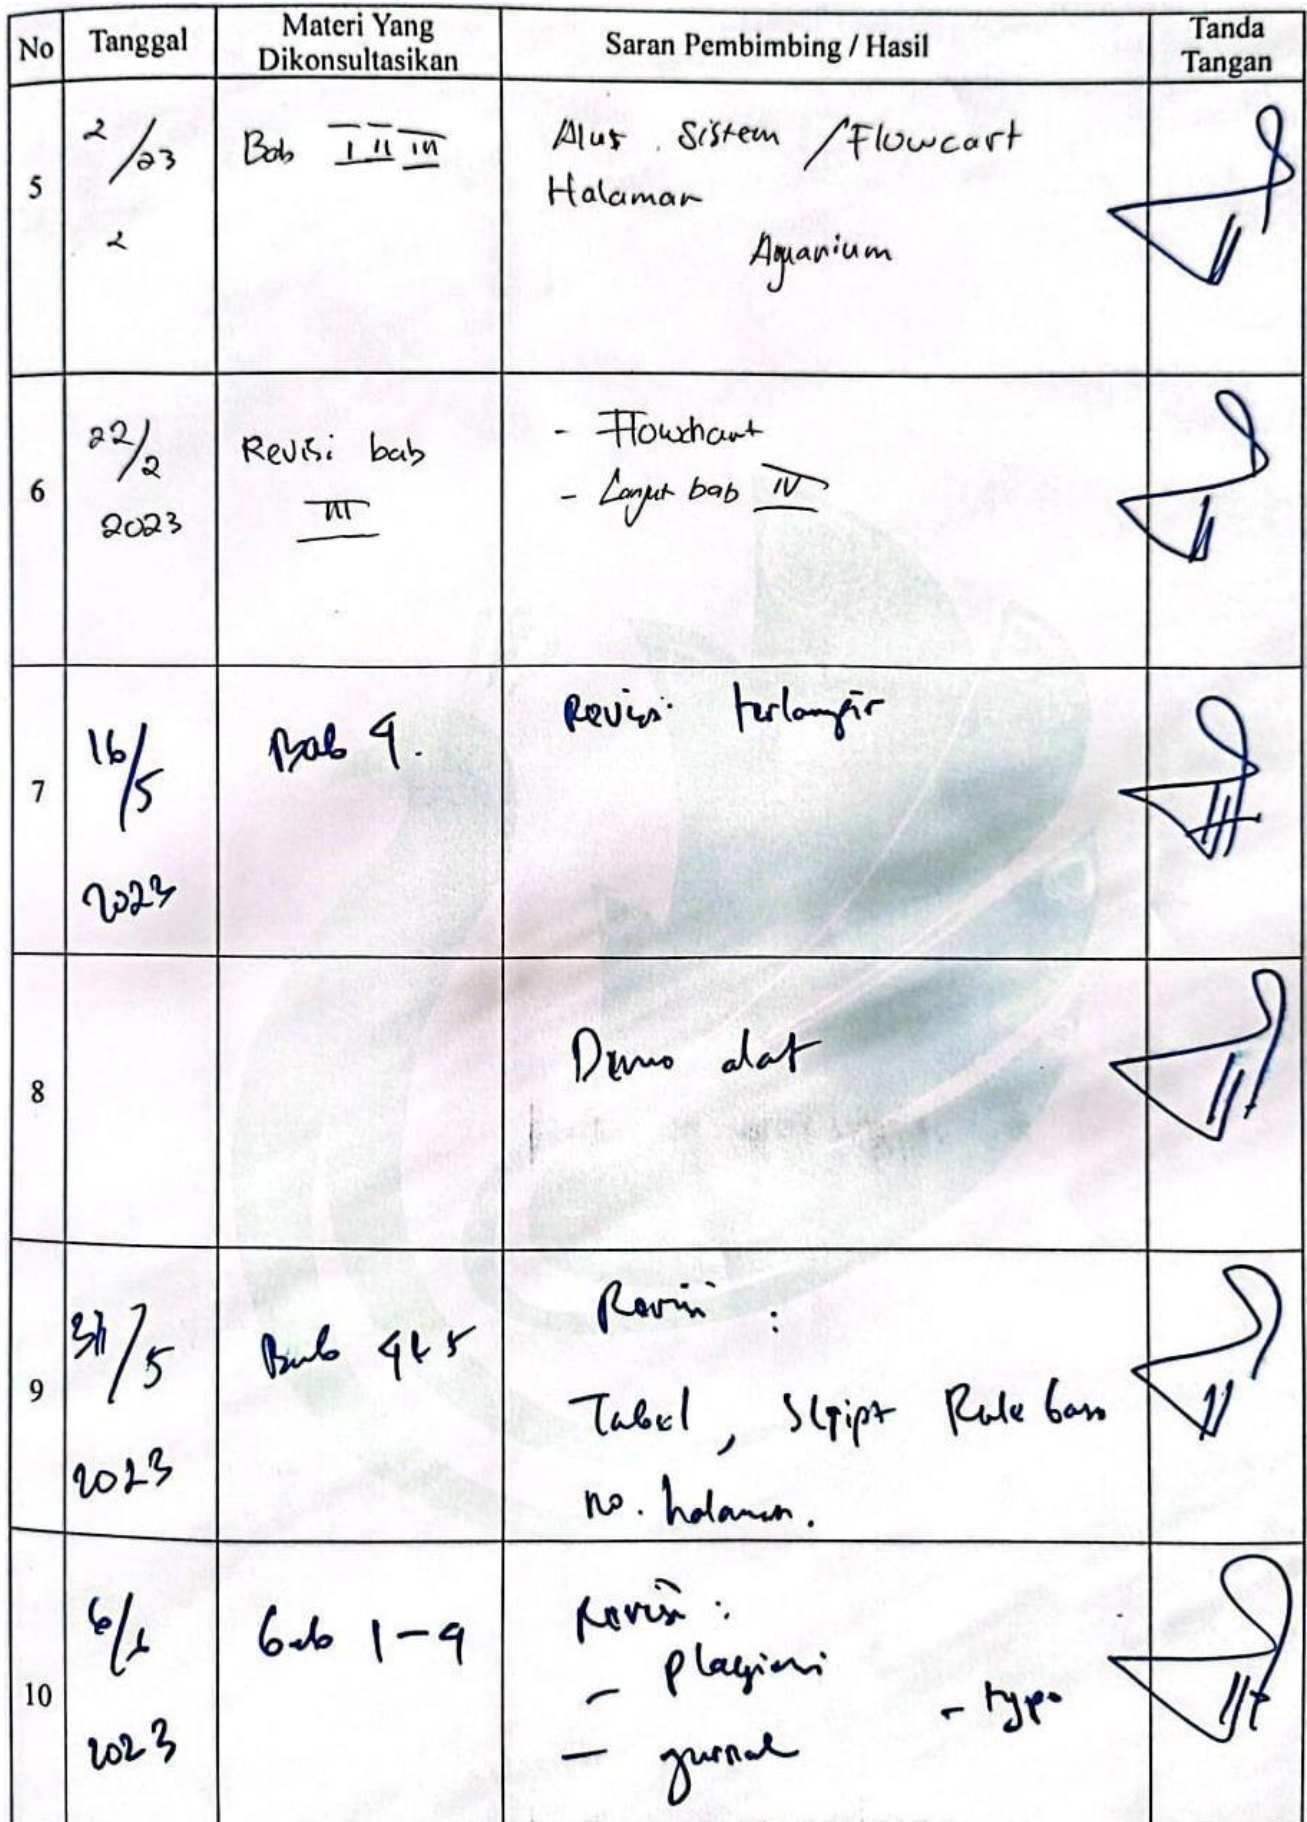 No Tanggal Materi Yang Dikonsultasikan Saran Pembimbing / Hasil Tanda Tangan
5 2/23 Bab I II III Alur Sistem / Flowcart
2 Halaman
Aquarium
6 22/2 Revisi bab - Flowchart
2023 III - Lanjut bab IV
7 16/5 Bab 4. Revisi
2023
8 Demo alat
9 31/5 Bab 4 & 5 Revisi :
2023 Tabel, Script Rule base
no. halaman.
10 6/6 bab 1-4 Revisi :
2023 - plagiasi
- typo
- jurnal